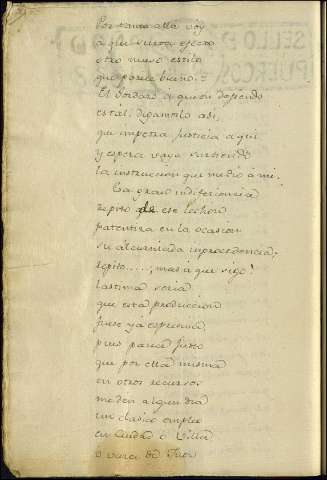 Por tanto allá voy
a que surta efecto
otro nuevo estilo
que parece bueno.
El bordado a quien defiendo
está, digamoslo asi,
que impetra justicia aqui
y espera vaya surtiendo
la instruccion que me dio á mi.
Esa gran indiferiencia
repito de ese lechon
patentiza en la ocasion
su alcurniada improcedencia;
repito....., mas á que sigo!
lastima seria
que esta produccion
fuese ya esprimida
pues parece justo
que por ella misma
en otros recursos
me den algun dia
un clasico empleo
en Ciudad o Villa
o vara de Juez
SELLO
PUERCOS